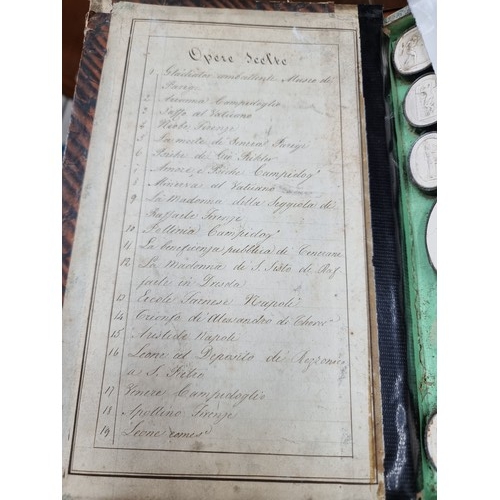 Opere Scelte
1 Gladiator combattente Museo di
Parigi
2 Arianna Campidoglio
3 Saffo al Vaticano
4 Niobe Firenze
5 La morte di
6 di Gio
7 Amore e Psiche Campidog°
8 Minerva al Vaticano
9 La Madonna della Seggiola di
Raffaele Firenze
10 Pollinia Campidog°
11 La beneficenza pubblica di Canova
12 La Madonna de S. Sisto de Raf
faele in
13 Ercole Farnese Napoli
14 Trionfo di Alessandro di Thorw
15 Aristide Napoli
16 Leone al Deposito di Rezzonico
a S. Pietro
17 Venere Campidoglio
18 Apollino Firenze
19 Leone